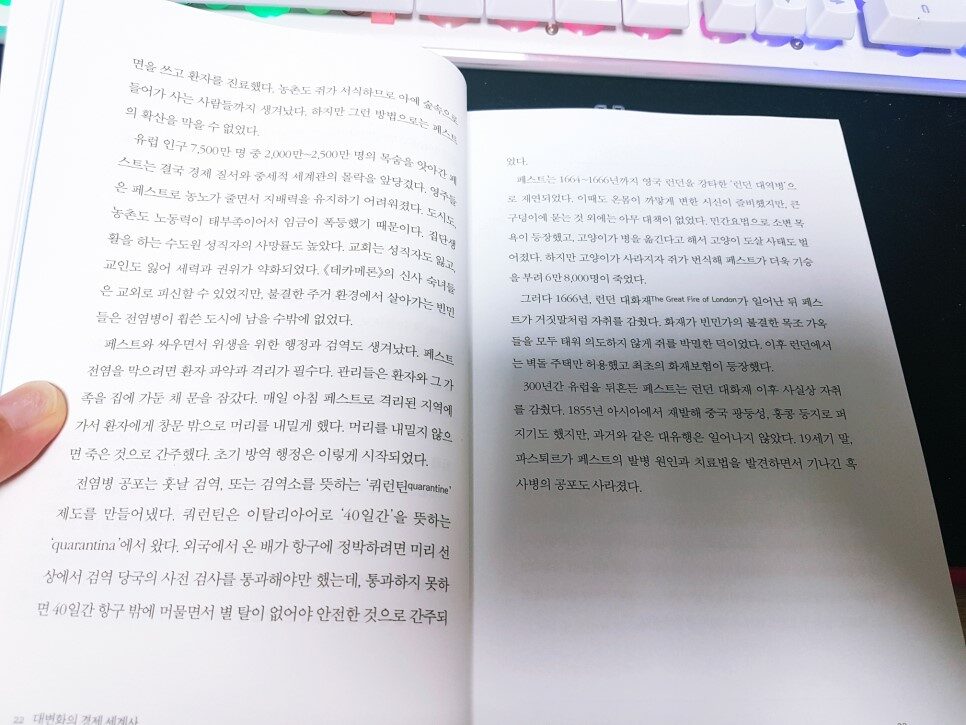 면을 쓰고 환자를 진료했다. 농촌도 쥐가 서식하므로 아예 숲속으로
들어가 사는 사람들까지 생겨났다. 하지만 그런 방법으로는 페스트
의 확산을 막을 수 없었다.
유럽 인구 7,500만 명 중 2,000만~2,500만 명의 목숨을 앗아간 페
스트는 결국 경제 질서와 중세적 세계관의 몰락을 앞당겼다. 영주들
은 페스트로 농노가 줄면서 지배력을 유지하기 어려워졌다. 도시도,
농촌도 노동력이 태부족이어서 임금이 폭등했기 때문이다. 집단생
활을 하는 수도원 성직자의 사망률도 높았다. 교회는 성직자도 잃고,
교인도 잃어 세력과 권위가 약화되었다. 《데카메론》의 신사 숙녀들
은 교외로 피신할 수 있었지만, 불결한 주거 환경에서 살아가는 빈민
들은 전염병이 휩쓴 도시에 남을 수밖에 없었다.
페스트와 싸우면서 위생을 위한 행정과 검역도 생겨났다. 페스트
전염을 막으려면 환자 파악과 격리가 필수다. 관리들은 환자와 그 가
족을 집에 가둔 채 문을 잠갔다. 매일 아침 페스트로 격리된 지역에
가서 환자에게 창문 밖으로 머리를 내밀게 했다. 머리를 내밀지 않으
면 죽은 것으로 간주했다. 초기 방역 행정은 이렇게 시작되었다.
전염병 공포는 훗날 검역, 또는 검역소를 뜻하는 '쿼런틴quarantine'
제도를 만들어냈다. 쿼런틴은 이탈리아어로 '40일간'을 뜻하는
'quarantina'에서 왔다. 외국에서 온 배가 항구에 정박하려면 미리 선
상에서 검역 당국의 사전 검사를 통과해야만 했는데, 통과하지 못하
면 40일간 항구 밖에 머물면서 별 탈이 없어야 안전한 것으로 간주되
22 대변화의 경제 세계사
었다.
페스트는 1664~1666년까지 영국 런던을 강타한 '런던 대역병'으
로 재연되었다. 이때도 온몸이 까맣게 변한 시신이 즐비했지만, 큰
구덩이에 묻는 것 외에는 아무 대책이 없었다. 민간요법으로 소변 목
욕이 등장했고, 고양이가 병을 옮긴다고 해서 고양이 도살 사태도 벌
어졌다. 하지만 고양이가 사라지자 쥐가 번식해 페스트가 더욱 기승
을 부려 6만 8,000명이 죽었다.
그러다 1666년, 런던 대화재The Great Fire of London가 일어난 뒤 페스
트가 거짓말처럼 자취를 감췄다. 화재가 빈민가의 불결한 목조 가옥
들을 모두 태워 의도하지 않게 쥐를 박멸한 덕이었다. 이후 런던에서
는 벽돌 주택만 허용했고 최초의 화재보험이 등장했다.
300년간 유럽을 뒤흔든 페스트는 런던 대화재 이후 사실상 자취
를 감췄다. 1855년 아시아에서 재발해 중국 광둥성, 홍콩 등지로 퍼
지기도 했지만, 과거와 같은 대유행은 일어나지 않았다. 19세기 말,
파스퇴르가 페스트의 발병 원인과 치료법을 발견하면서 기나긴 흑
사병의 공포도 사라졌다.